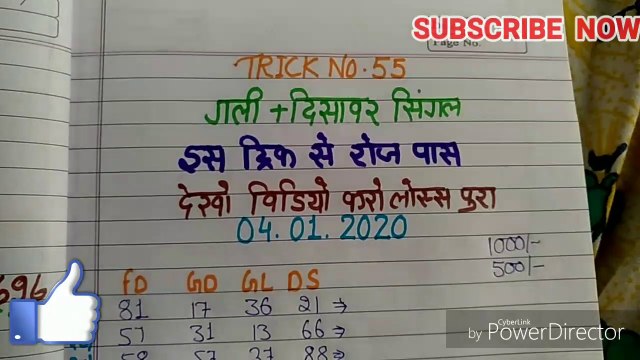 SUBSCRIBE NOW
Page No.
TRICK NO. 55
गली + दिसावर सिंगल
इस ट्रिक से रोज पास
देखो विडियो करो लोस्स पुरा
04.01.2020
1000/-
500/-
696
FD GD GL DS
81 17 36 21 →
57 31 13 66 →
58 57 37 88 →
CyberLink
by PowerDirector